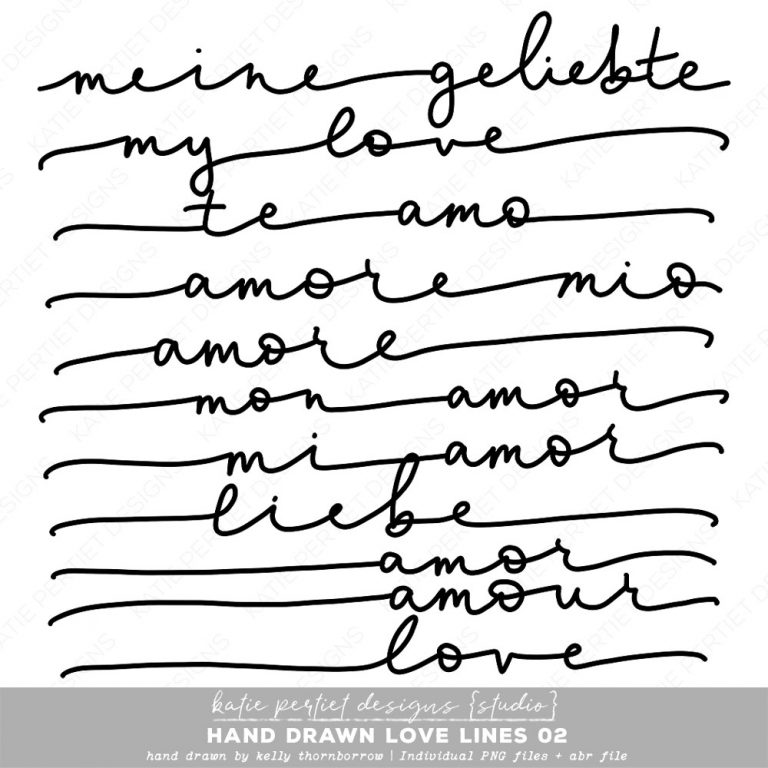 meine geliebte
my love
te amo
amore mio
amore
mon amor
mi amor
liebe
amor
amour
love
katie pertiet designs {studio}
HAND DRAWN LOVE LINES 02
hand drawn by kelly thornborrow | Individual PNG files + abr file